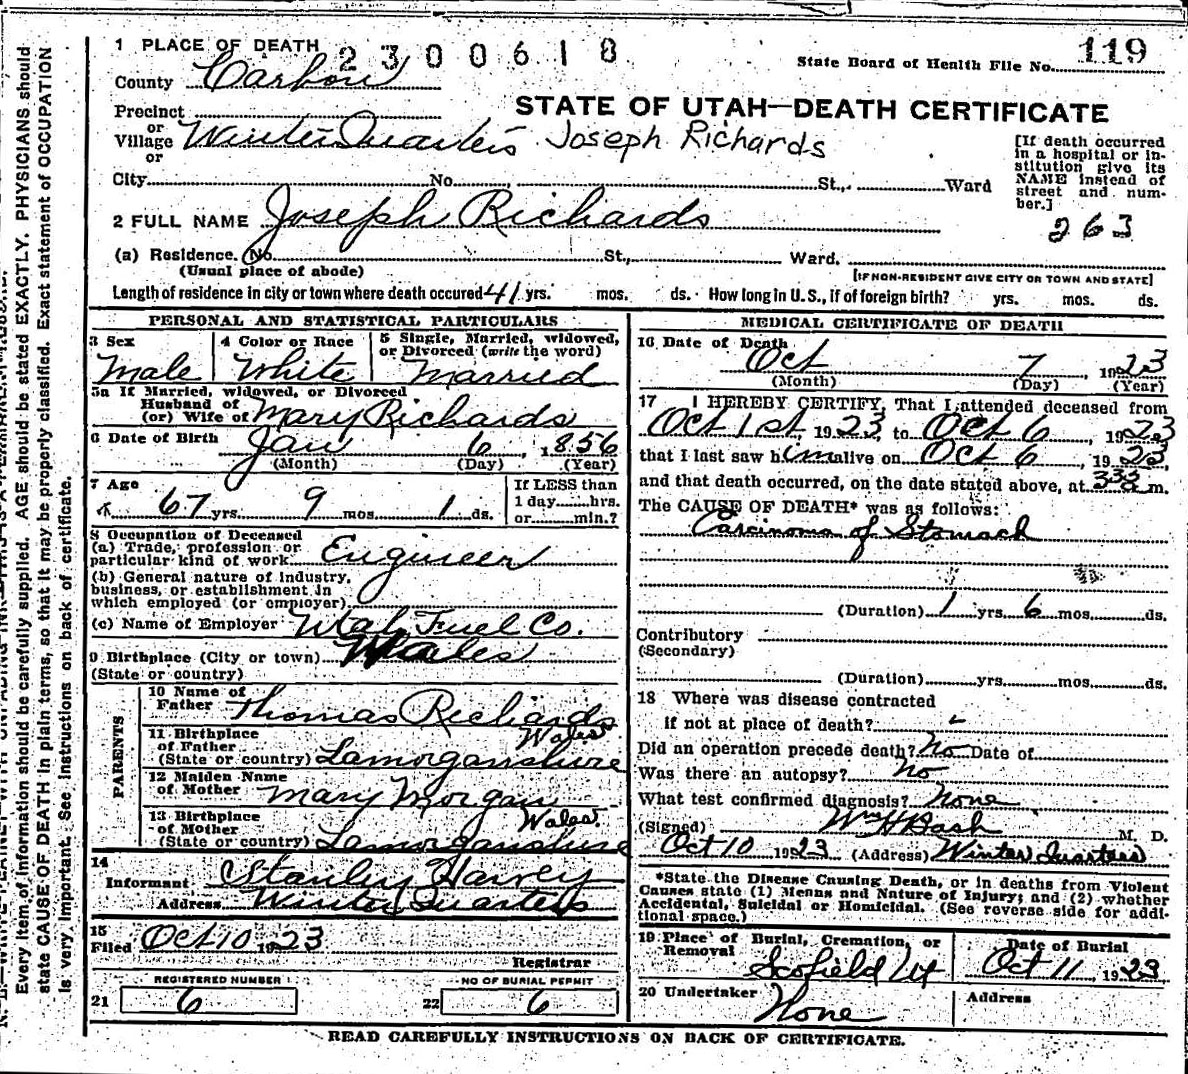 1 PLACE OF DEATH 2300618 119
State Board of Health File No.
County Carbon
STATE OF UTAH—DEATH CERTIFICATE
Precinct
or
Village Winter Quarters Joseph Richards
or
City No. St., Ward
[If death occurred in a hospital or institution give its NAME instead of street and number.]
263
2 FULL NAME Joseph Richards
(a) Residence. No. St., Ward.
(Usual place of abode) [IF NON-RESIDENT GIVE CITY OR TOWN AND STATE]
Length of residence in city or town where death occured 41 yrs. mos. ds. How long in U. S., if of foreign birth? yrs. mos. ds.
PERSONAL AND STATISTICAL PARTICULARS
3 Sex Male
4 Color or Race White
5 Single, Married, widowed, or Divorced (write the word) Married
5a If Married, widowed, or Divorced
Husband of
(or) Wife of Mary Richards
6 Date of Birth Jan 6, 1856
(Month) (Day) (Year)
7 Age 67 yrs. 9 mos. 1 ds.
If LESS than
1 day hrs.
or min.?
8 Occupation of Deceased
(a) Trade, profession or
particular kind of work Engineer
(b) General nature of industry,
business, or establishment in
which employed (or employer)
(c) Name of Employer Utah Fuel Co.
9 Birthplace (City or town) Wales
(State or country)
PARENTS
10 Name of
Father Thomas Richards
11 Birthplace
of Father Wales
(State or country) Lamorganshire
12 Maiden Name
of Mother Mary Morgan
13 Birthplace
of Mother Wales.
(State or country) Lamorganshire
14
Informant Stanley Harvey
Address Winter Quarters
15
Filed Oct 10 1923
Registrar
REGISTERED NUMBER
21 6
NO OF BURIAL PERMIT
22 6
MEDICAL CERTIFICATE OF DEATH
16 Date of Death Oct 7, 1923
(Month) (Day) (Year)
17 I HEREBY CERTIFY, That I attended deceased from
Oct 1st, 1923, to Oct 6, 1923
that I last saw him alive on Oct 6, 1923,
and that death occurred, on the date stated above, at m.
The CAUSE OF DEATH* was as follows:
Carcinoma of Stomach
(Duration) 1 yrs. 6 mos. ds.
Contributory
(Secondary)
(Duration) yrs. mos. ds.
18 Where was disease contracted
if not at place of death?
Did an operation precede death? No Date of
Was there an autopsy? No
What test confirmed diagnosis? None
(Signed) Wm H Bash M. D.
Oct 10 1923 (Address) Winter Quarters
*State the Disease Causing Death, or in deaths from Violent
Causes state (1) Means and Nature of Injury; and (2) whether
Accidental, Suicidal or Homicidal. (See reverse side for addi-
tional space.)
19 Place of Burial, Cremation, or
Removal Scofield Ut
Date of Burial
Oct 11, 1923
20 Undertaker None
Address
READ CAREFULLY INSTRUCTIONS ON BACK OF CERTIFICATE.
Every item of information should be carefully supplied. AGE should be stated EXACTLY. PHYSICIANS should
state CAUSE OF DEATH in plain terms, so that it may be properly classified. Exact statement of OCCUPATION
is very important. See instructions on back of certificate.